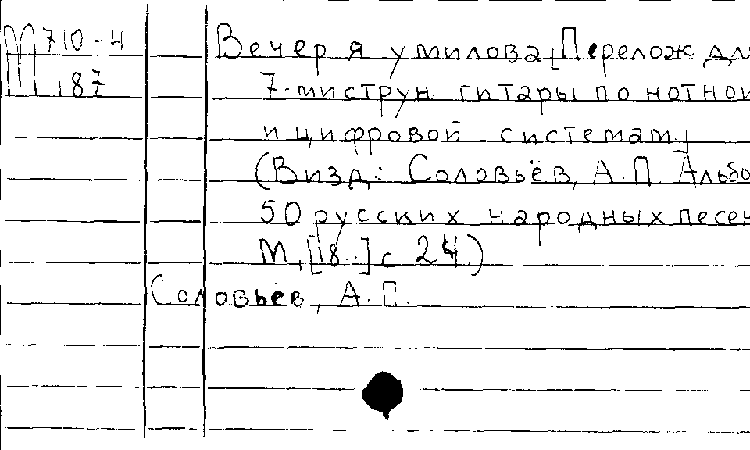 М 710-4
М 187
Вечер я у милова [Перелож дл
7-миструн гитары по нотной
и цифровой системам]
(В изд: Соловьёв, А.П. Альбо
50 русских народных песен
М, [18..] с 24.)
Соловьёв, А.П.